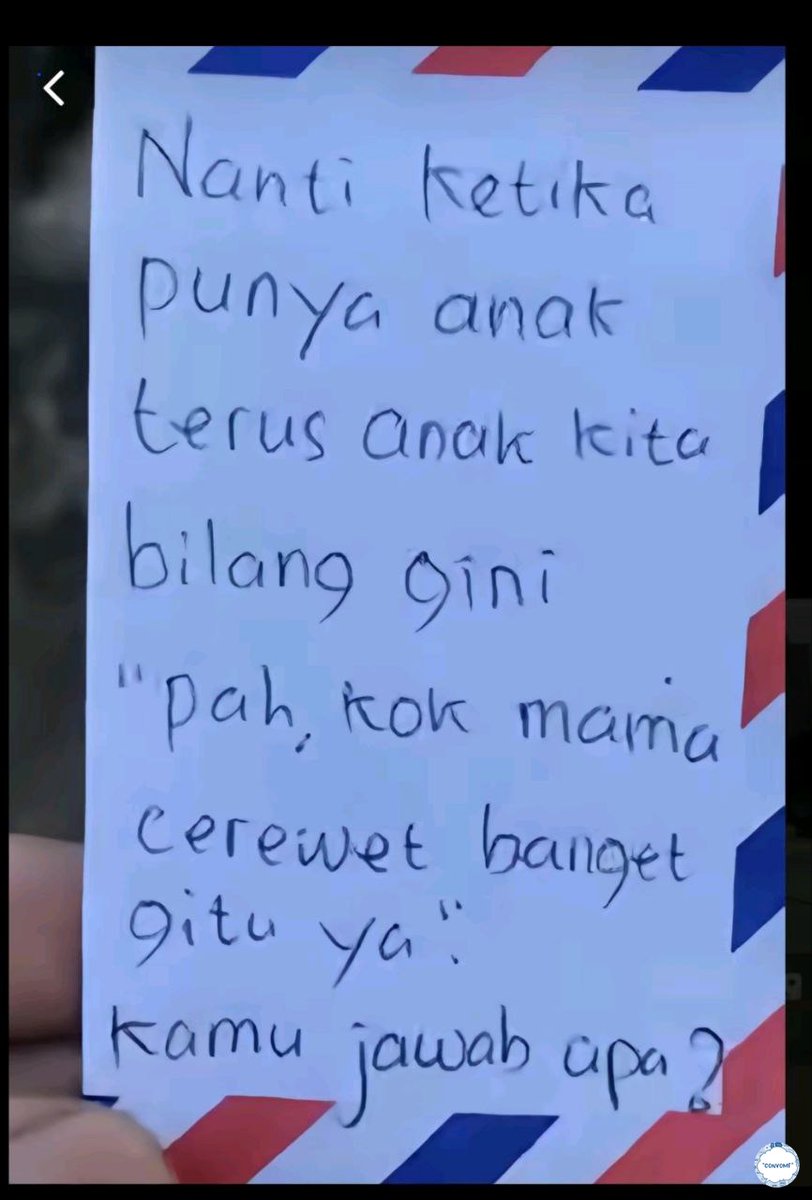 Nanti ketika
punya anak
terus anak kita
bilang gini
"pah, kok mama
cerewet banget
gitu ya".
kamu jawab apa?
"CONYOME"